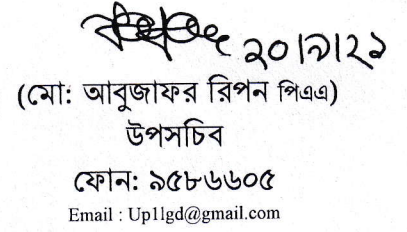 ২০।৯।২১
(মো: আবুজাফর রিপন পিএএ)
উপসচিব
ফোন: ৯৫৮৬৬০৫
Email : Up1lgd@gmail.com